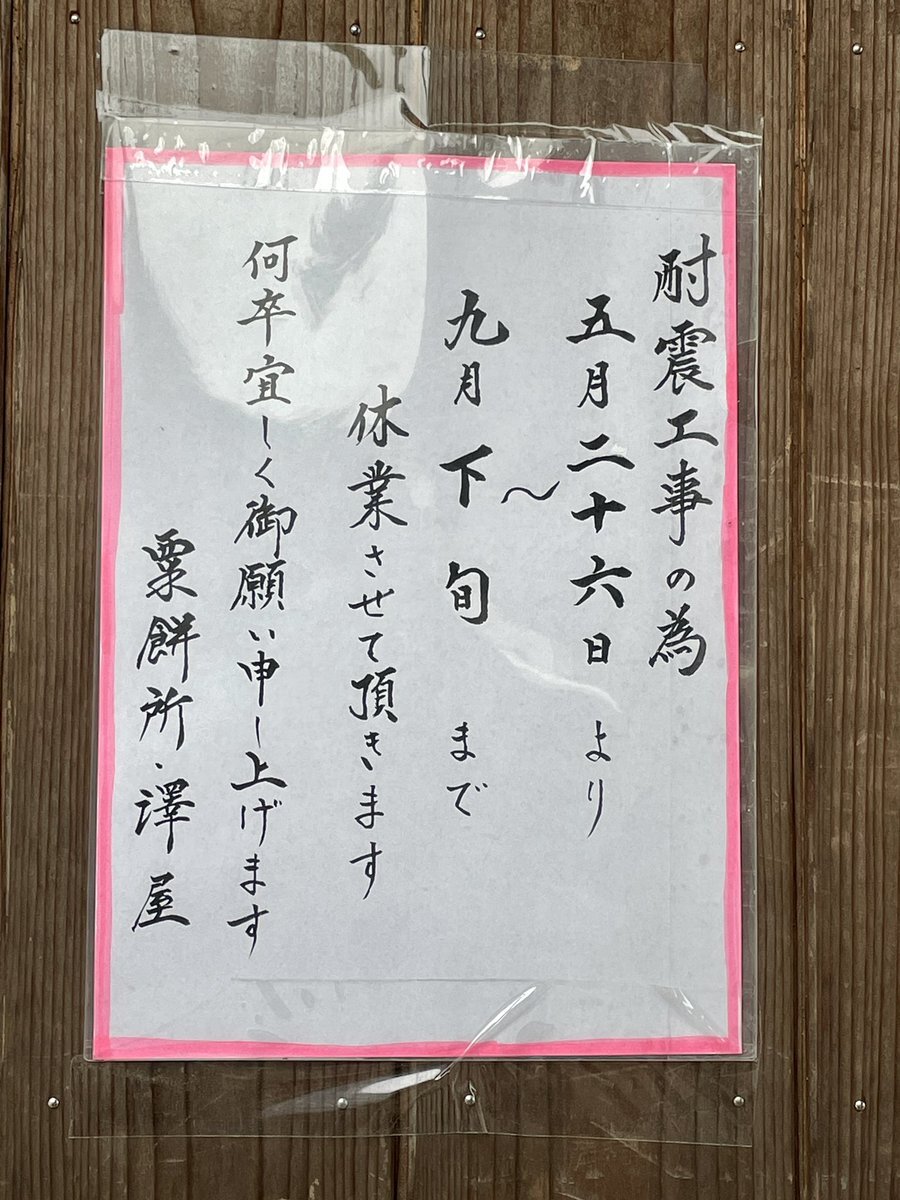 耐震工事の為
五月二十六日より
〜
九月下旬まで
休業させて頂きます
何卒宜しく御願い申し上げます
粟餅所・澤屋